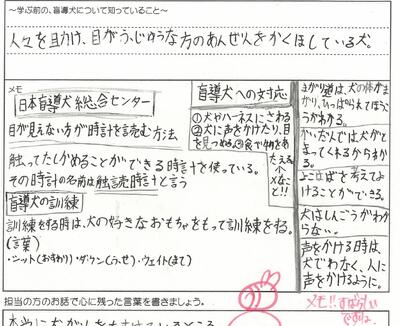 〜学ぶ前の、盲導犬について知っていること〜
人々を助け、目がふじゅうな方のあんぜんをかくほしている犬。
メモ
日本盲導犬総合センター
目が見えない方が時計を読む方法、
触ってたしかめることができる時計を使っている。
その時計の名前は触読時計と言う
盲導犬の訓練
訓練をする時は、犬の好きなおもちゃをもって訓練をする。
(言葉)
・シット(おすわり)・ダウン(ふせ)・ウェイト(まて)
盲導犬への対応
①犬やハーネスにさわる
②犬に声をかけたり、目
を見つめる③食べ物をあ
たえる
↑
ダメなこと!!
まがり道は、犬の体がま
がり、ひっぱられてほうこ
うがわかる。
かいだんでは犬がと
まってくれるからわか
る。
よこはばを考えてよ
けることができる。
犬はしんごうがわか
らない。
声をかける時は、
犬でわなく、人に
声をかけるように。
メモ!!すばらしい
ですね
担当の方のお話で心に残った言葉を書きましょう。